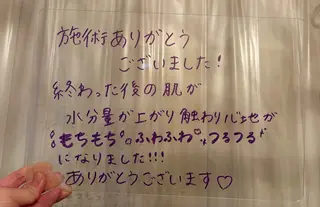 施術ありがとう
ございました!
終わった後の肌が
水分量が上がり触わり心地が
もちもち。ふわふわ♡、つるつる
になりました!!!
ありがとうございます♡